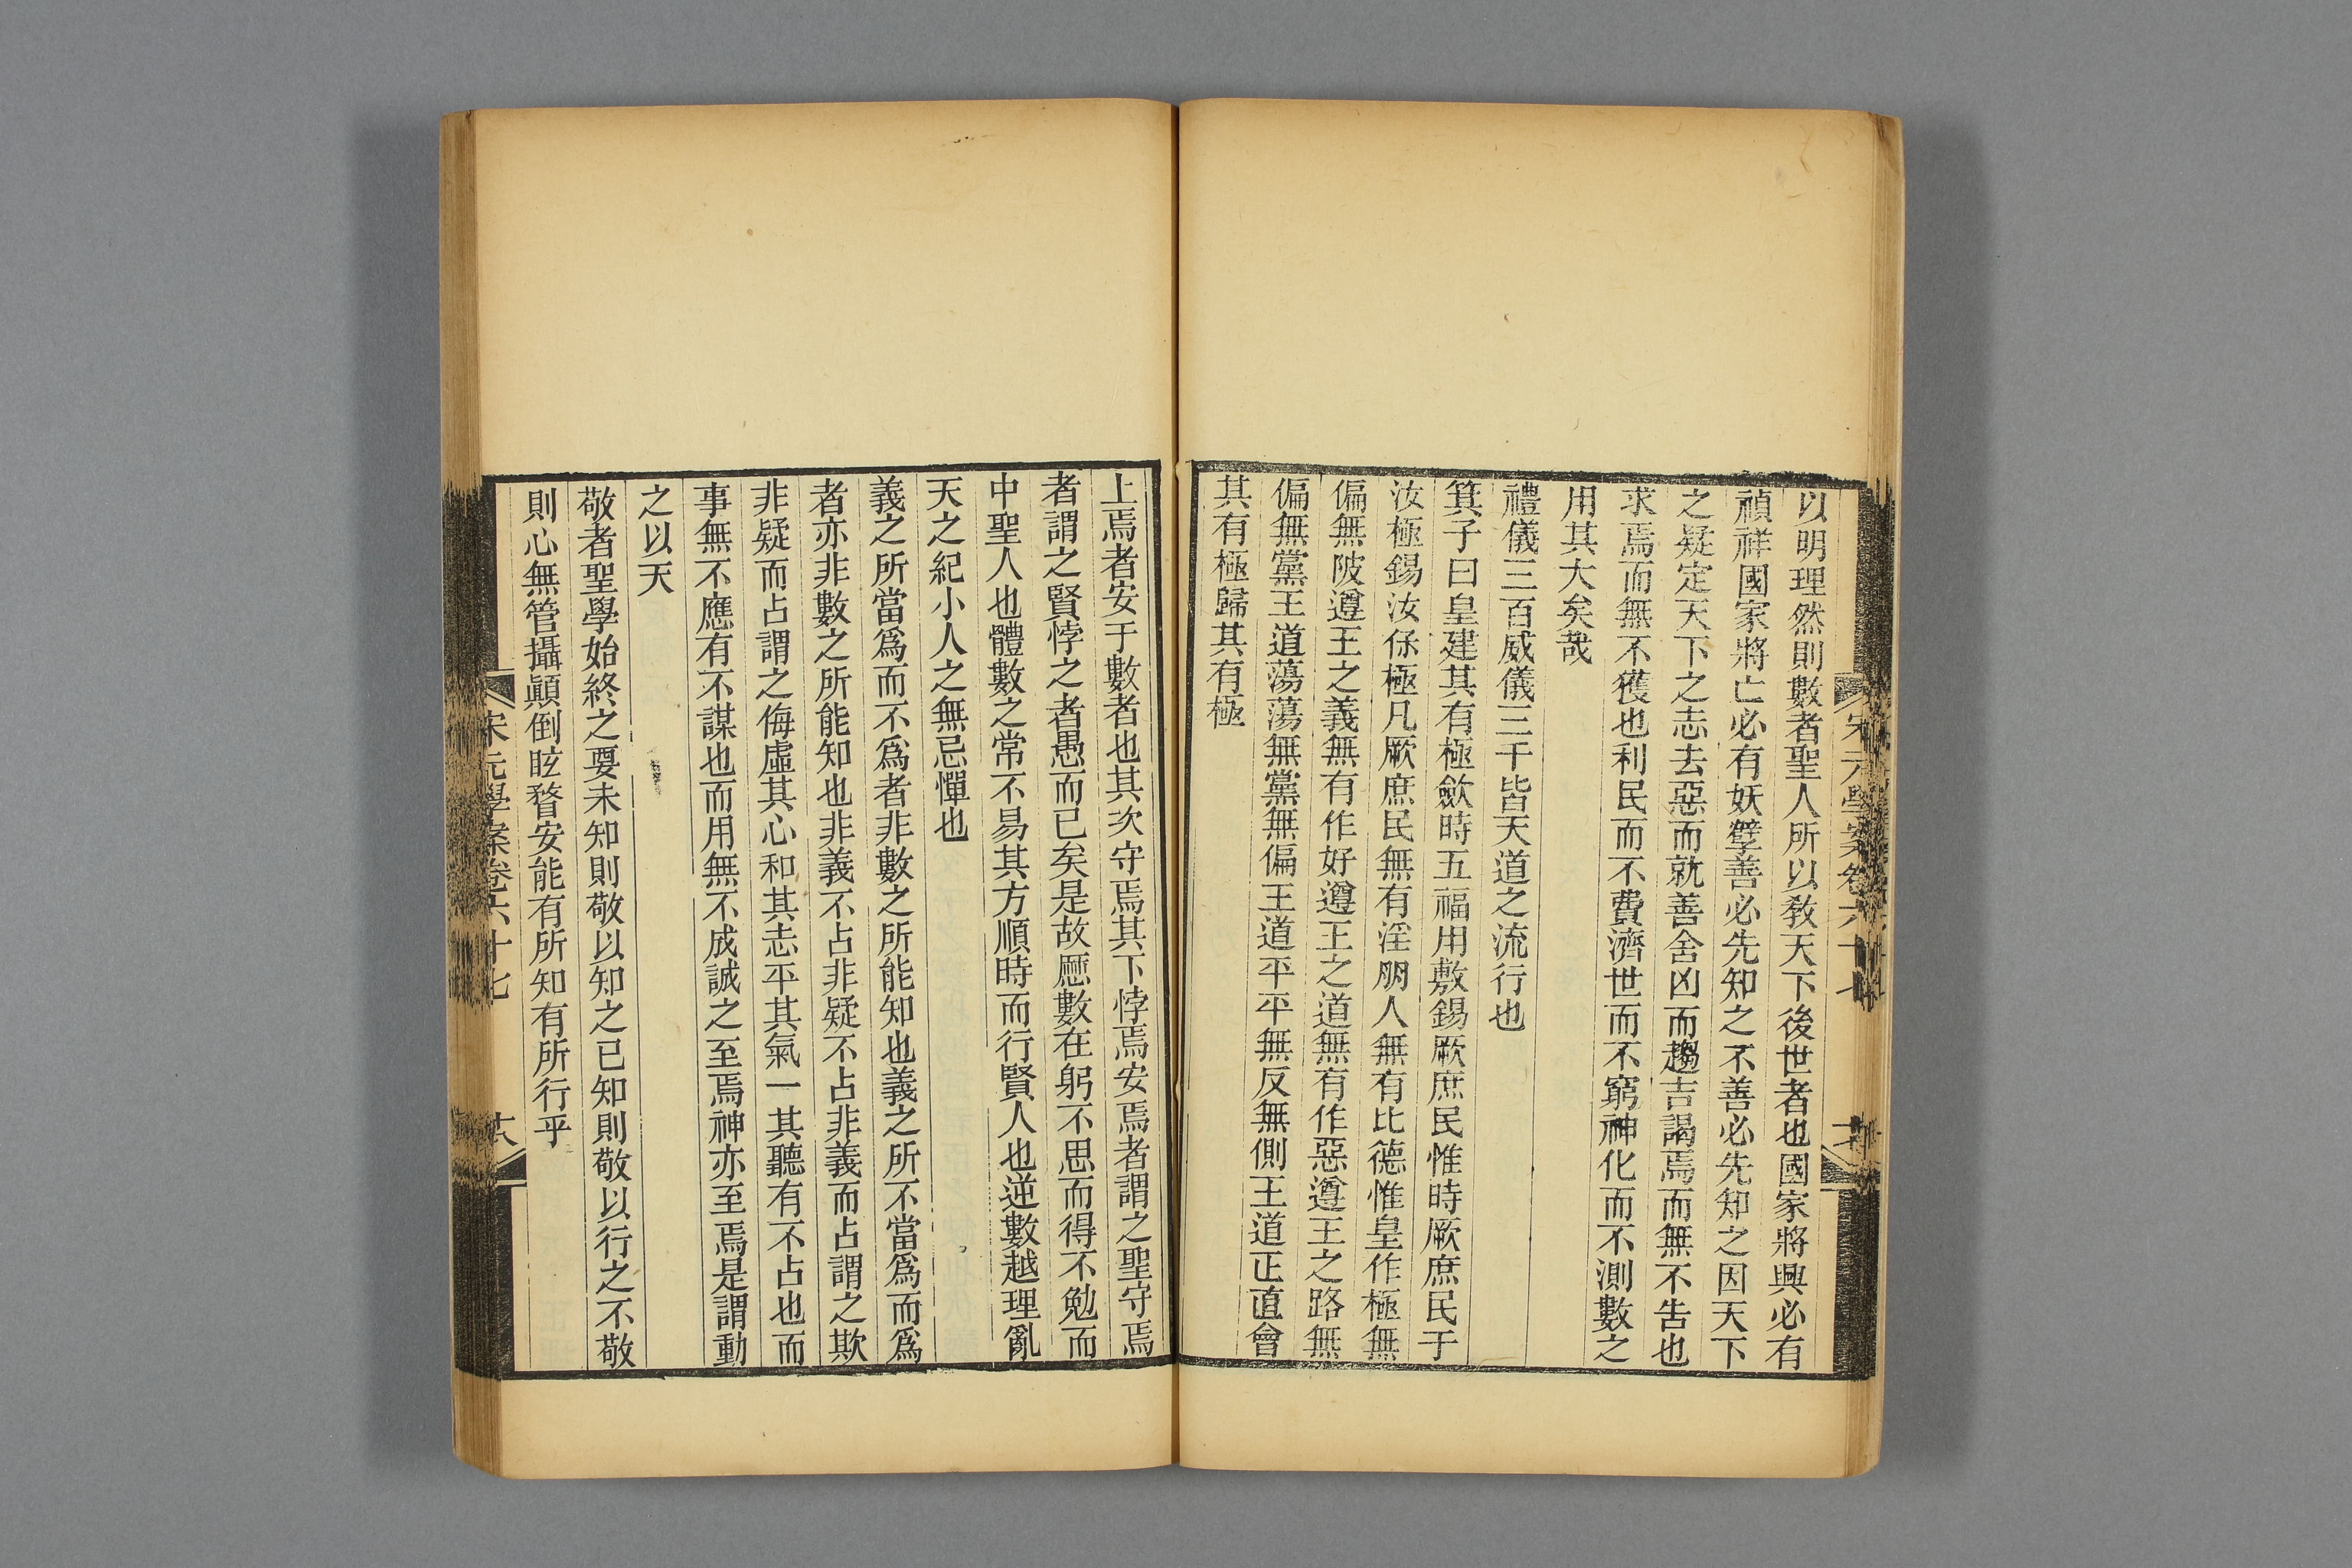 以明理然則數者聖人所以敎天下後世者也國家將興必有
禎祥國家將亡必有妖孼善必先知之不善必先知之因天下
之疑定天下之志去惡而就善舍凶而趨吉謁焉而無不告也
求焉而無不獲也利民而不費濟世而不窮神化而不測數之
用其大矣哉
禮儀三百威儀三千皆天道之流行也
箕子曰皇建其有極斂時五福用敷錫厥庶民惟時厥庶民于
汝極錫汝保極凡厥庶民無有淫朋人無有比德惟皇作極無
偏無陂遵王之義無有作好遵王之道無有作惡遵王之路無
偏無黨王道蕩蕩無黨無偏王道平平無反無側王道正直會
其有極歸其有極
上焉者安于數者也其次守焉其下悖焉安焉者謂之聖守焉
者謂之賢悖之者愚而已矣是故厯數在躬不思而得不勉而
中聖人也體數之常不易其方順時而行賢人也逆數越理亂
天之紀小人之無忌憚也
義之所當爲而不爲者非數之所能知也義之所不當爲而爲
者亦非數之所能知也非義不占非疑不占非義而占謂之欺
非疑而占謂之侮虛其心和其志平其氣一其聽有不占也而
事無不應有不謀也而用無不成誠之至焉神亦至焉是謂動
之以天
敬者聖學始終之要未知則敬以知之已知則敬以行之不敬
則心無管攝顚倒眩瞀安能有所知有所行乎
宋元學案卷六十七